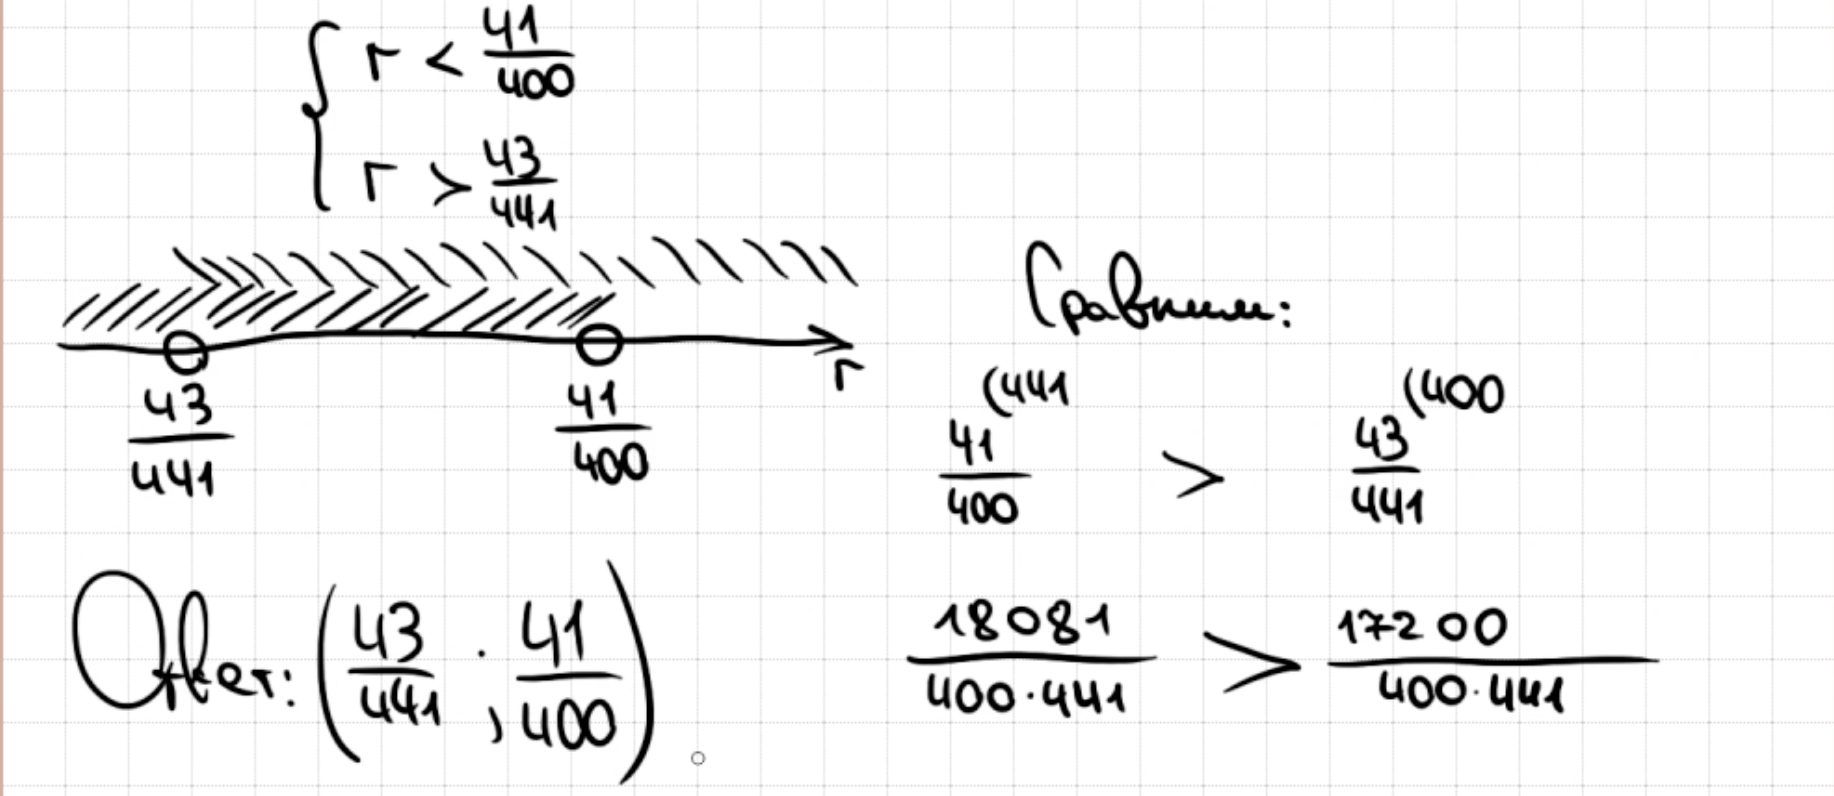 { r < 41/400
r > 43/441
r
43/441 41/400
Сравним:
41/400 (441 > 43/441 (400
18081/400·441 > 17200/400·441
Ответ: (43/441 ; 41/400)